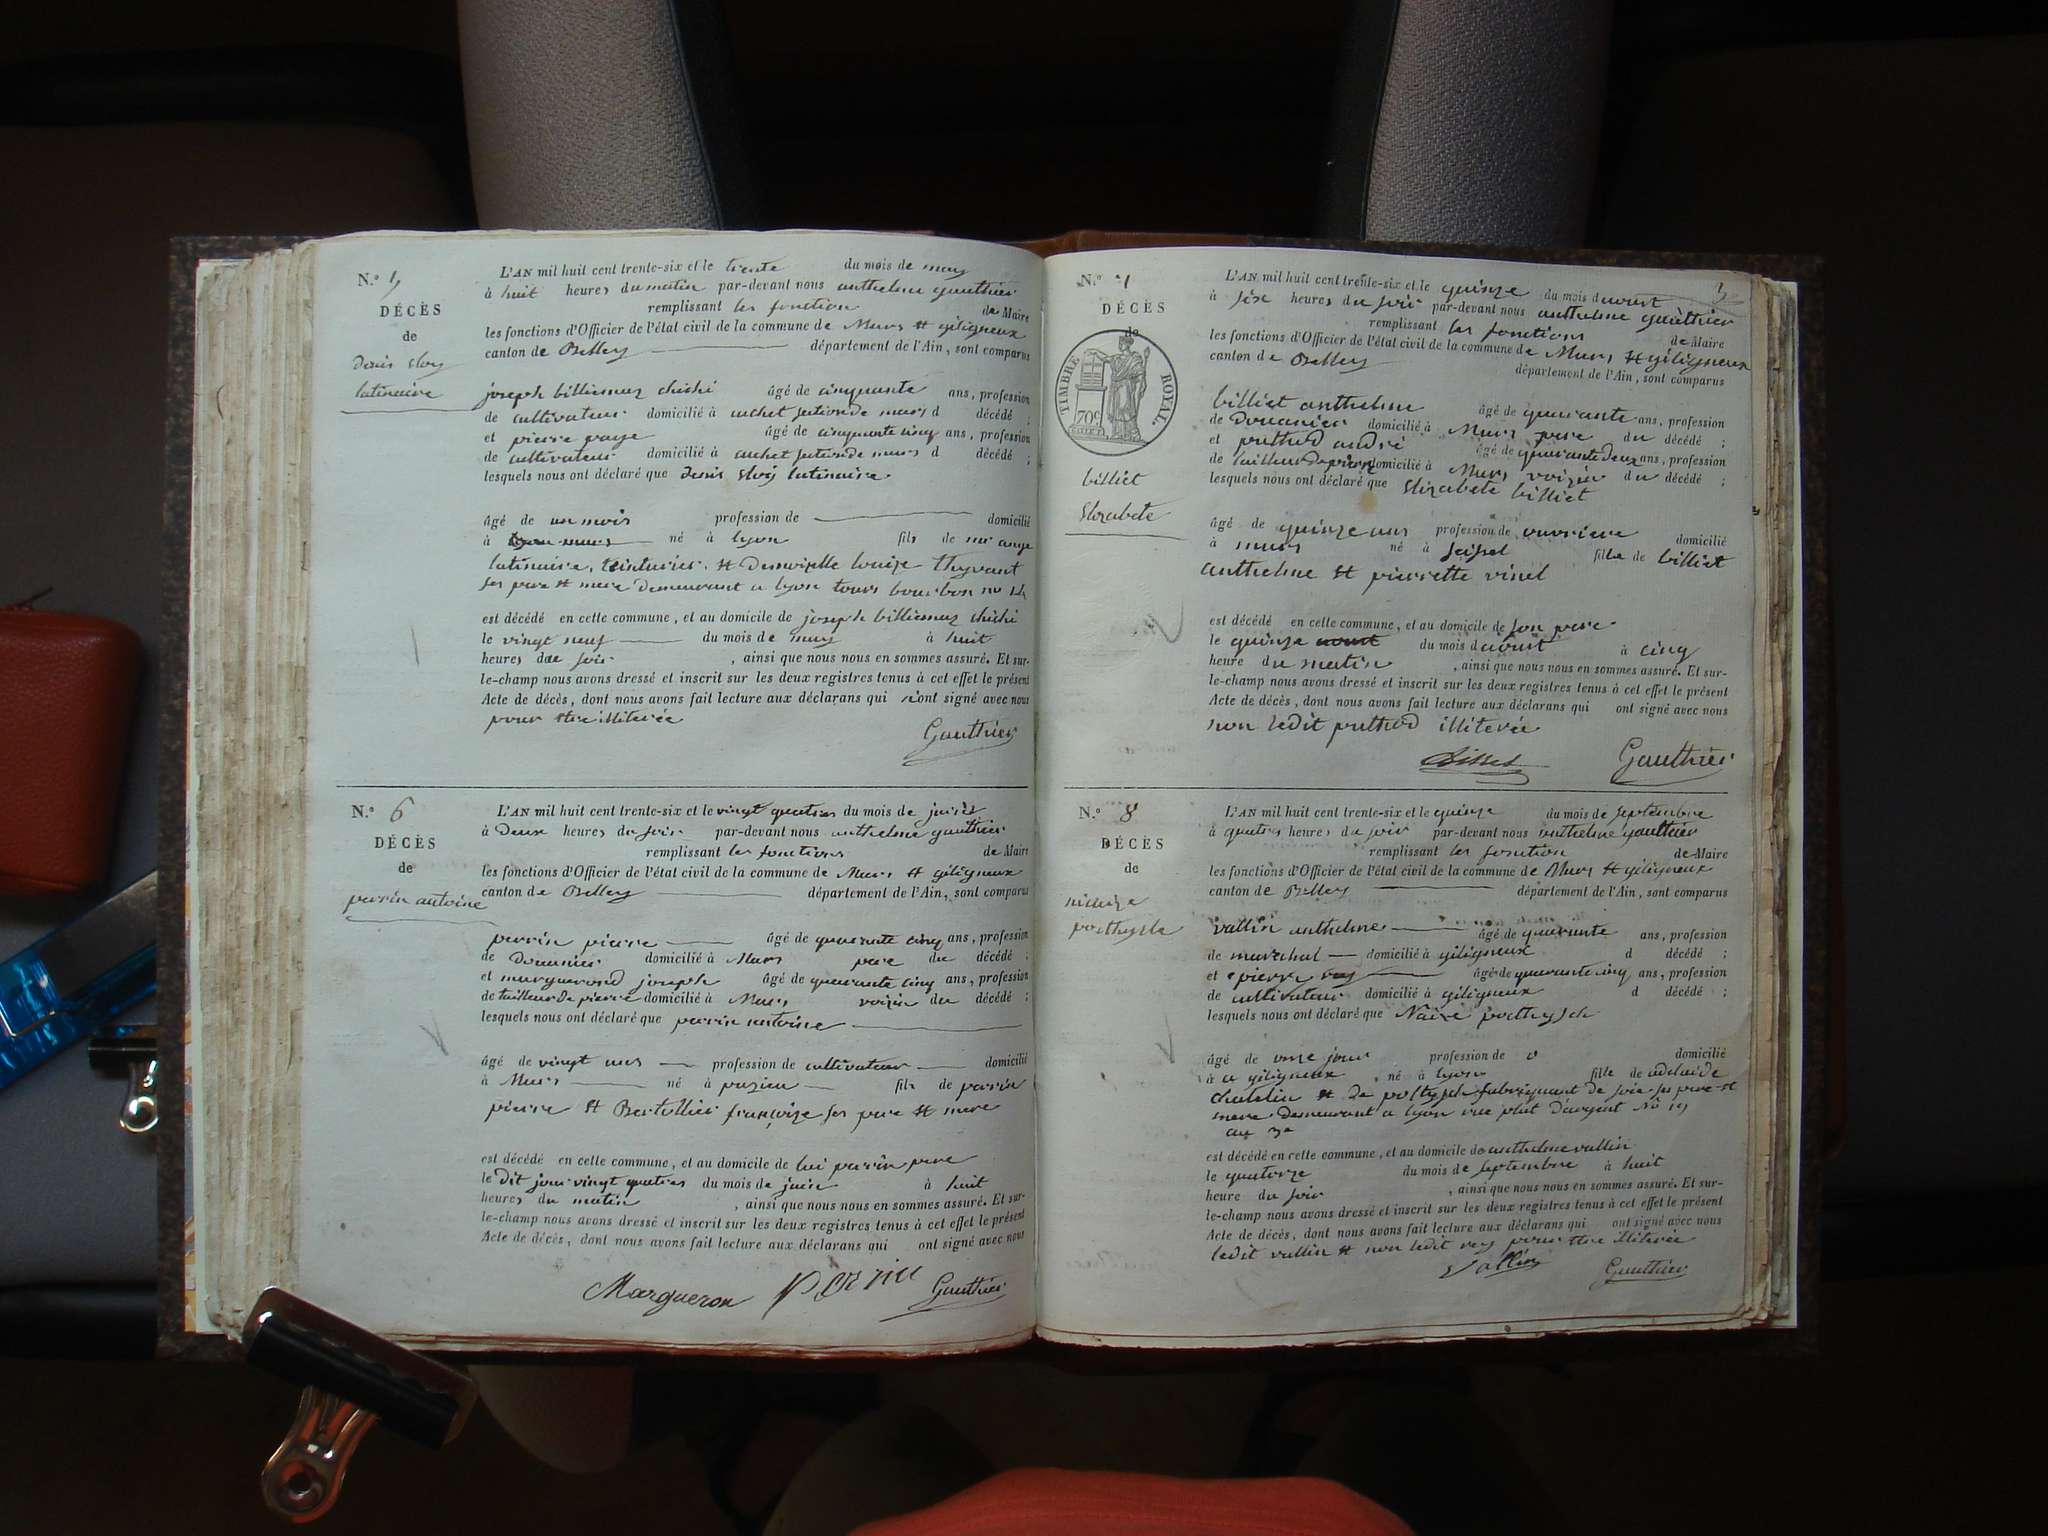 N.º 5
DÉCÈS
de
denis eloy
latinaire
L'AN mil huit cent trente-six et le trente du mois de may
à huit heures du matin par-devant nous anthelme gauthier
remplissant les fonction de Maire
les fonctions d'Officier de l'état civil de la commune de Murs et géligneux
canton de Belley département de l'Ain, sont comparus
joseph billiemaz chichi âgé de cinquante ans, profession
de cultivateur domicilié à de murs d décédé ;
et pierre âgé de cinquante cinq ans, profession
de cultivateur domicilié à de murs d décédé ;
lesquels nous ont déclaré que denis eloy latinaire
âgé de un mois profession de domicilié
à murs né à lyon fils de mr ange
latinaire, teinturier, et demoiselle louise thyvant
ses pere et mere demeurant a lyon cours bourbon no
est décédé en cette commune, et au domicile de joseph billiemaz chichi
le vingt neuf du mois de may à huit
heures du soir , ainsi que nous nous en sommes assuré. Et sur-
le-champ nous avons dressé et inscrit sur les deux registres tenus à cet effet le présent
Acte de décès, dont nous avons fait lecture aux déclarans qui n'ont signé avec nous
pour etre illiterée
Gauthier
N.º 6
DÉCÈS
de
perrin antoine
L'AN mil huit cent trente-six et le vingt quatres du mois de juin
à deux heures du soir par-devant nous anthelme gauthier
remplissant les fonctions de Maire
les fonctions d'Officier de l'état civil de la commune de Murs et géligneux
canton de Belley département de l'Ain, sont comparus
perrin pierre âgé de quarante cinq ans, profession
de Douanier domicilié à Murs pere du décédé ;
et marguerond joseph âgé de quarante cinq ans, profession
de tailleur de pierre domicilié à Murs voisin du décédé ;
lesquels nous ont déclaré que perrin antoine
âgé de vingt ans profession de cultivateur domicilié
à Murs né à fils de perrin
pierre et Bertollier françoize ses pere et mere
est décédé en cette commune, et au domicile de lui perrin pere
le dit jour vingt quatres du mois de juin à huit
heures du matin , ainsi que nous nous en sommes assuré. Et sur-
le-champ nous avons dressé et inscrit sur les deux registres tenus à cet effet le présent
Acte de décès, dont nous avons fait lecture aux déclarans qui ont signé avec nous
Margueron Perrin Gauthier
3
N.º 7
DÉCÈS
de
TIMBRE ROYAL.
70c
billiet
Elizabete
L'AN mil huit cent trente-six et le quinze du mois d'aoust
à six heures du soir par-devant nous anthelme gauthier
remplissant les fonctions de Maire
les fonctions d'Officier de l'état civil de la commune de Murs et géligneux
canton de Belley département de l'Ain, sont comparus
billiet anthelme âgé de quarante ans, profession
de Douanier domicilié à Murs pere du décédé ;
et puthod andré âgé de quarante deux ans, profession
de tailleur de pierre domicilié à Murs voisin du décédé ;
lesquels nous ont déclaré que Elizabete billiet
âgé de quinze ans profession de ouvriere domicilié
à murs né à seissel fille de billiet
anthelme et pierrette vinel
est décédé en cette commune, et au domicile de son pere
le quinze aoust du mois d'aoust à cinq
heure du matin , ainsi que nous nous en sommes assuré. Et sur-
le-champ nous avons dressé et inscrit sur les deux registres tenus à cet effet le présent
Acte de décès, dont nous avons fait lecture aux déclarans qui ont signé avec nous
non ledit puthod illiterée
Gauthier
N.º 8
DÉCÈS
de
L'AN mil huit cent trente-six et le quinze du mois de septembre
à quatres heures du soir par-devant nous anthelme gauthier
remplissant les fonction de Maire
les fonctions d'Officier de l'état civil de la commune de Murs et géligneux
canton de Belley département de l'Ain, sont comparus
vallin anthelme âgé de quarante ans, profession
de marechal domicilié à géligneux d décédé ;
et pierre rey âgé de quarante cinq ans, profession
de cultivateur domicilié à géligneux d décédé ;
lesquels nous ont déclaré que
âgé de onze jour profession de o domicilié
à a géligneux né à lyon fille de adelaide
chatelin et de fabriquant de soie ses pere et
mere demeurant a lyon rue plat d'argent No 19
au 3e
est décédé en cette commune, et au domicile de anthelme vallin
le quatorze du mois de septembre à huit
heure du soir , ainsi que nous nous en sommes assuré. Et sur-
le-champ nous avons dressé et inscrit sur les deux registres tenus à cet effet le présent
Acte de décès, dont nous avons fait lecture aux déclarans qui ont signé avec nous
ledit vallin et non ledit rey pour etre illiterée
Vallin Gauthier